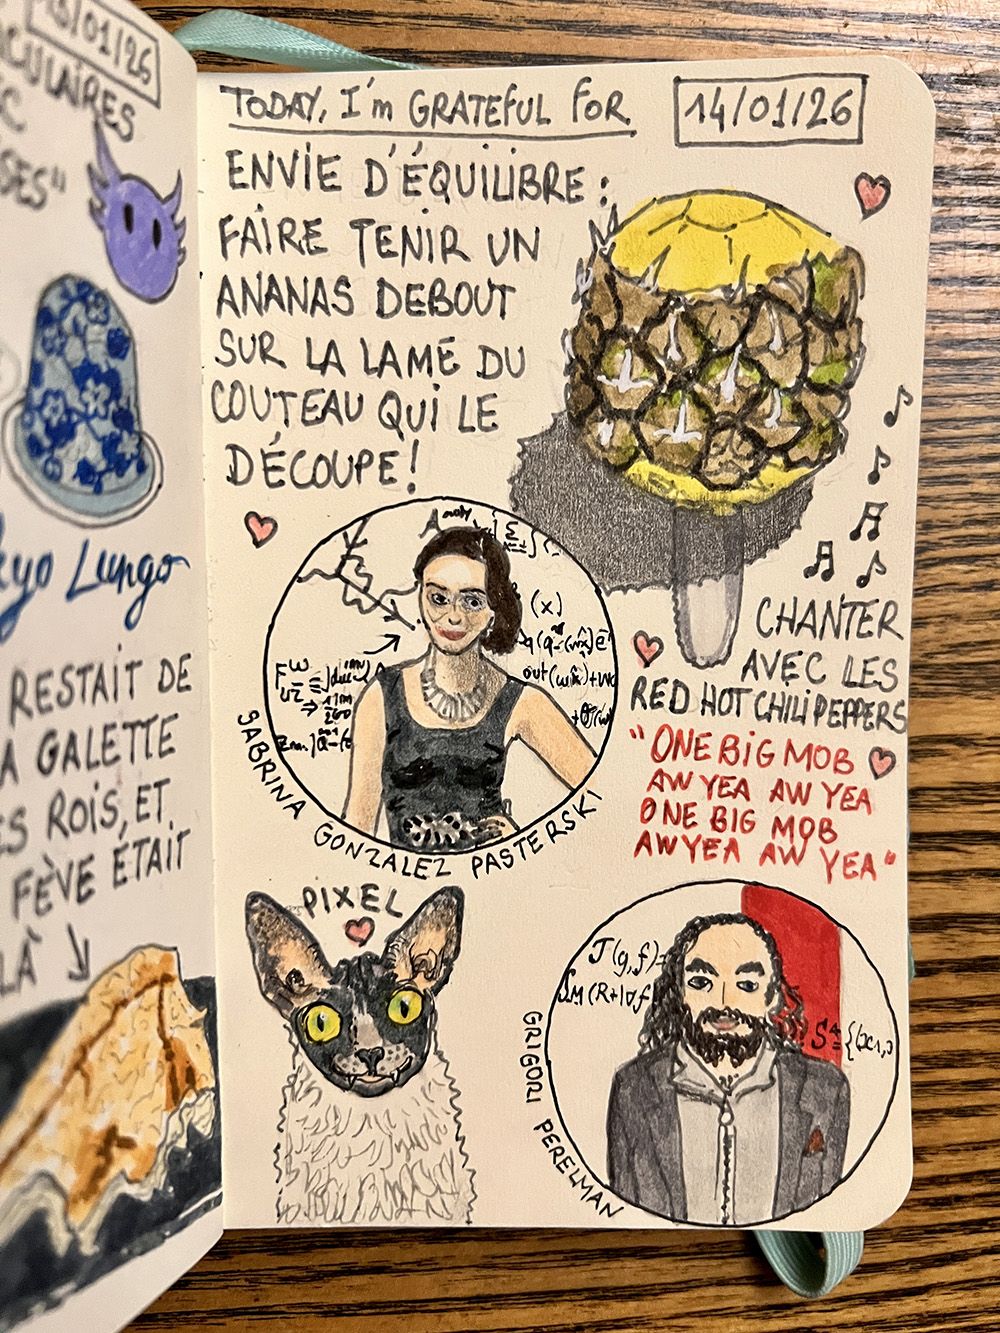 /01/26
CULAIRES
SES"
yo Lungo
RESTAIT DE
A GALETTE
ES ROIS, ET
FÈVE ÉTAIT
LÀ
TODAY, I'm GRATEFUL FOR
14/01/26
ENVIE D'ÉQUILIBRE :
FAIRE TENIR UN
ANANAS DEBOUT
SUR LA LAME DU
COUTEAU QUI LE
DÉCOUPE !
CHANTER
AVEC LES
RED HOT CHILI PEPPERS
"ONE BIG MOB
AW YEA AW YEA
ONE BIG MOB
AW YEA AW YEA"
(x)
SABRINA GONZALEZ PASTERSKI
PIXEL
J(g,f)=
GRIGORI PERELMAN